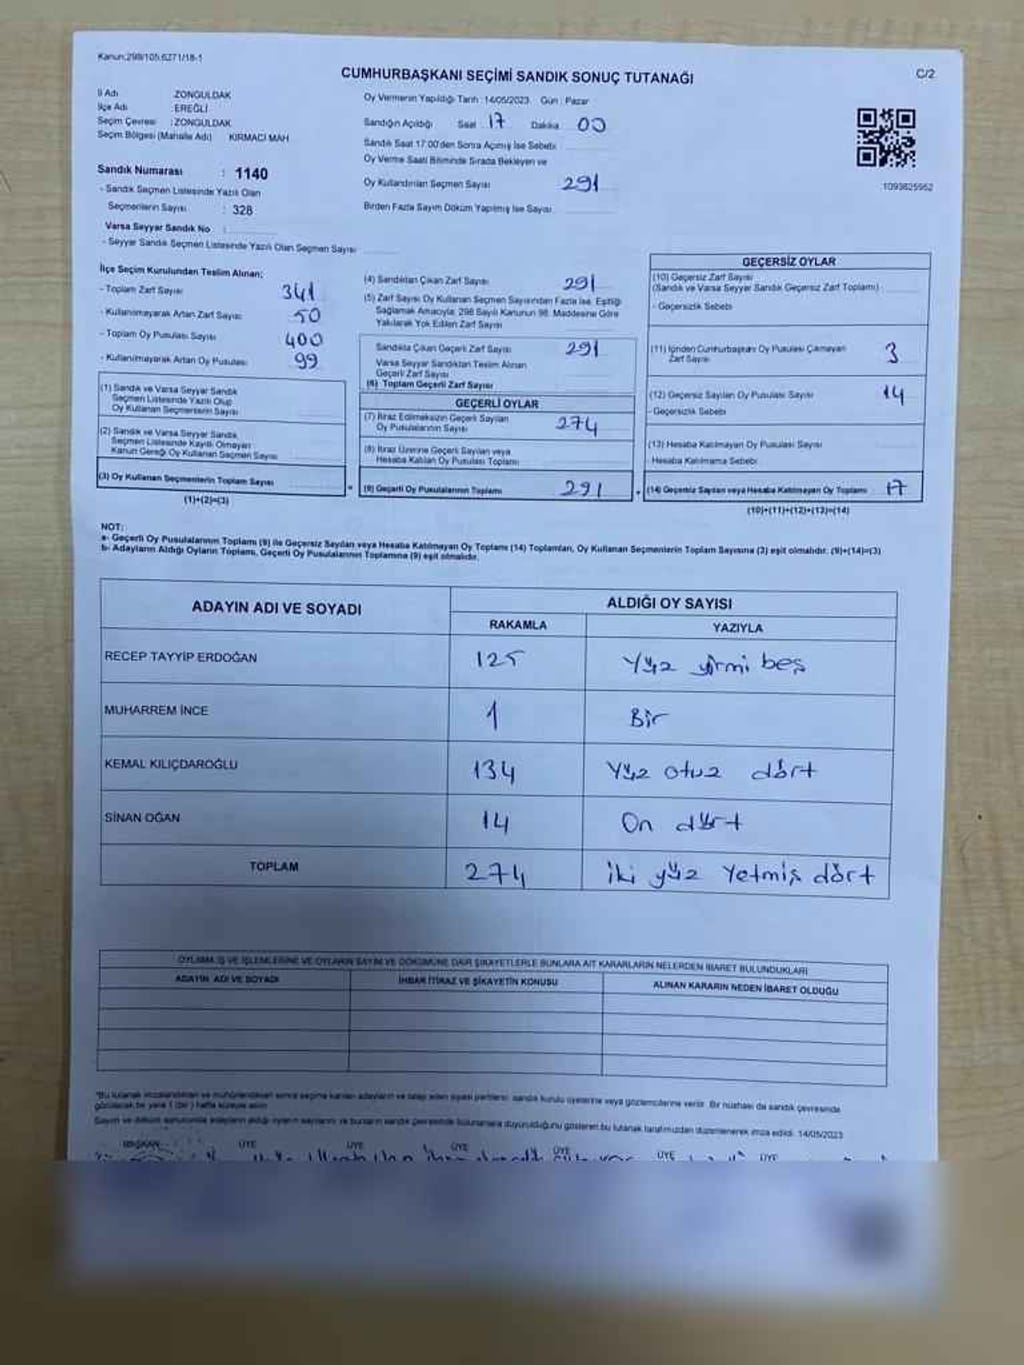 Kanun:298/105,6271/18-1
CUMHURBAŞKANI SEÇİMİ SANDIK SONUÇ TUTANAĞI
C/2
İl Adı : ZONGULDAK
İlçe Adı : EREĞLİ
Seçim Çevresi : ZONGULDAK
Seçim Bölgesi (Mahalle Adı) KIRMACI MAH
Oy Vermenin Yapıldığı Tarih : 14/05/2023 Gün : Pazar
Sandığın Açıldığı Saat : 17 Dakika 00
Sandık Saat 17:00'den Sonra Açılmış İse Sebebi
Oy Verme Saati Bitiminde Sırada Bekleyen ve
Oy Kullandırılan Seçmen Sayısı 291
Birden Fazla Sayım Döküm Yapılmış İse Sayısı
1093625952
Sandık Numarası : 1140
- Sandık Seçmen Listesinde Yazılı Olan
Seçmenlerin Sayısı : 328
Varsa Seyyar Sandık No :
- Seyyar Sandık Seçmen Listesinde Yazılı Olan Seçmen Sayısı
İlçe Seçim Kurulundan Teslim Alınan;
- Toplam Zarf Sayısı 341
- Kullanılmayarak Artan Zarf Sayısı 50
- Toplam Oy Pusulası Sayısı 400
- Kullanılmayarak Artan Oy Pusulası 99
(1) Sandık ve Varsa Seyyar Sandık
Seçmen Listesinde Yazılı Olup
Oy Kullanan Seçmenlerin Sayısı
(2) Sandık ve Varsa Seyyar Sandık
Seçmen Listesinde Kayıtlı Olmayan
Kanun Gereği Oy Kullanan Seçmen Sayısı
(3) Oy Kullanan Seçmenlerin Toplam Sayısı
(1)+(2)=(3)
(4) Sandıktan Çıkan Zarf Sayısı 291
(5) Zarf Sayısı Oy Kullanan Seçmen Sayısından Fazla İse, Eşitliği
Sağlamak Amacıyla; 298 Sayılı Kanunun 98. Maddesine Göre
Yakılarak Yok Edilen Zarf Sayısı
Sandıkta Çıkan Geçerli Zarf Sayısı 291
Varsa Seyyar Sandıktan Teslim Alınan
Geçerli Zarf Sayısı
(6) Toplam Geçerli Zarf Sayısı
GEÇERLİ OYLAR
(7) İtiraz Edilmeksizin Geçerli Sayılan
Oy Pusulalarının Sayısı 274
(8) İtiraz Üzerine Geçerli Sayılan veya
Hesaba Katılan Oy Pusulası Toplamı
= (9) Geçerli Oy Pusulalarının Toplamı 291
GEÇERSİZ OYLAR
(10) Geçersiz Zarf Sayısı
(Sandık ve Varsa Seyyar Sandık Geçersiz Zarf Toplamı)
- Geçersizlik Sebebi
(11) İçinden Cumhurbaşkanı Oy Pusulası Çıkmayan
Zarf Sayısı 3
(12) Geçersiz Sayılan Oy Pusulası Sayısı 14
- Geçersizlik Sebebi
(13) Hesaba Katılmayan Oy Pusulası Sayısı
- Hesaba Katılmama Sebebi
+ (14) Geçersiz Sayılan veya Hesaba Katılmayan Oy Toplamı 17
(10)+(11)+(12)+(13)=(14)
NOT:
a- Geçerli Oy Pusulalarının Toplamı (9) ile Geçersiz Sayılan veya Hesaba Katılmayan Oy Toplamı (14) Toplamları, Oy Kullanan Seçmenlerin Toplam Sayısına (3) eşit olmalıdır. (9)+(14)=(3)
b- Adayların Aldığı Oyların Toplamı, Geçerli Oy Pusulalarının Toplamına (9) eşit olmalıdır.
ADAYIN ADI VE SOYADI ALDIĞI OY SAYISI
RAKAMLA YAZIYLA
RECEP TAYYİP ERDOĞAN 125 Yüz yirmi beş
MUHARREM İNCE 1 Bir
KEMAL KILIÇDAROĞLU 134 Yüz otuz dört
SİNAN OĞAN 14 On dört
TOPLAM 274 iki yüz Yetmiş dört
OYLAMA İŞ VE İŞLEMLERİNE VE OYLARIN SAYIM VE DÖKÜMÜNE DAİR ŞİKAYETLERLE BUNLARA AİT KARARLARIN NELERDEN İBARET BULUNDUKLARI
ADAYIN ADI VE SOYADI İHBAR İTİRAZ VE ŞİKAYETİN KONUSU ALINAN KARARIN NEDEN İBARET OLDUĞU
14/05/2023
BAŞKAN ÜYE ÜYE ÜYE ÜYE ÜYE ÜYE